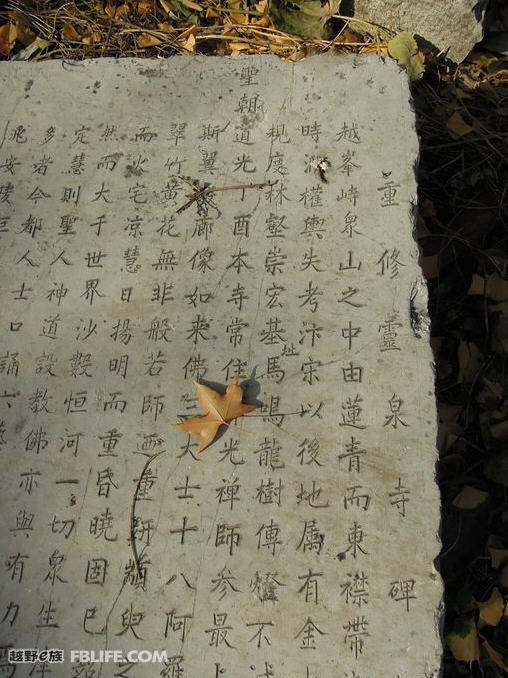 重修靈泉寺碑
越峯峙泉山之中由蓮青而東襟帶
時權輿失考汴宋以後地属有金
規度秝壑崇宏基址馬鳴龍樹傳燈不
聖朝道光丁酉本寺常住光禪師参最
斯翼廊像如来佛三大士十八阿羅
翠竹黄花無非般若師迺重臾之
而火宅凉慧日揚明而重昏曉固已
然而大千世界沙數恒河一切衆生
定慧則聖人神道設教佛亦與有力焉
多者今都人士口誦六
安陵巨
越野e族 FBLIFE.COM